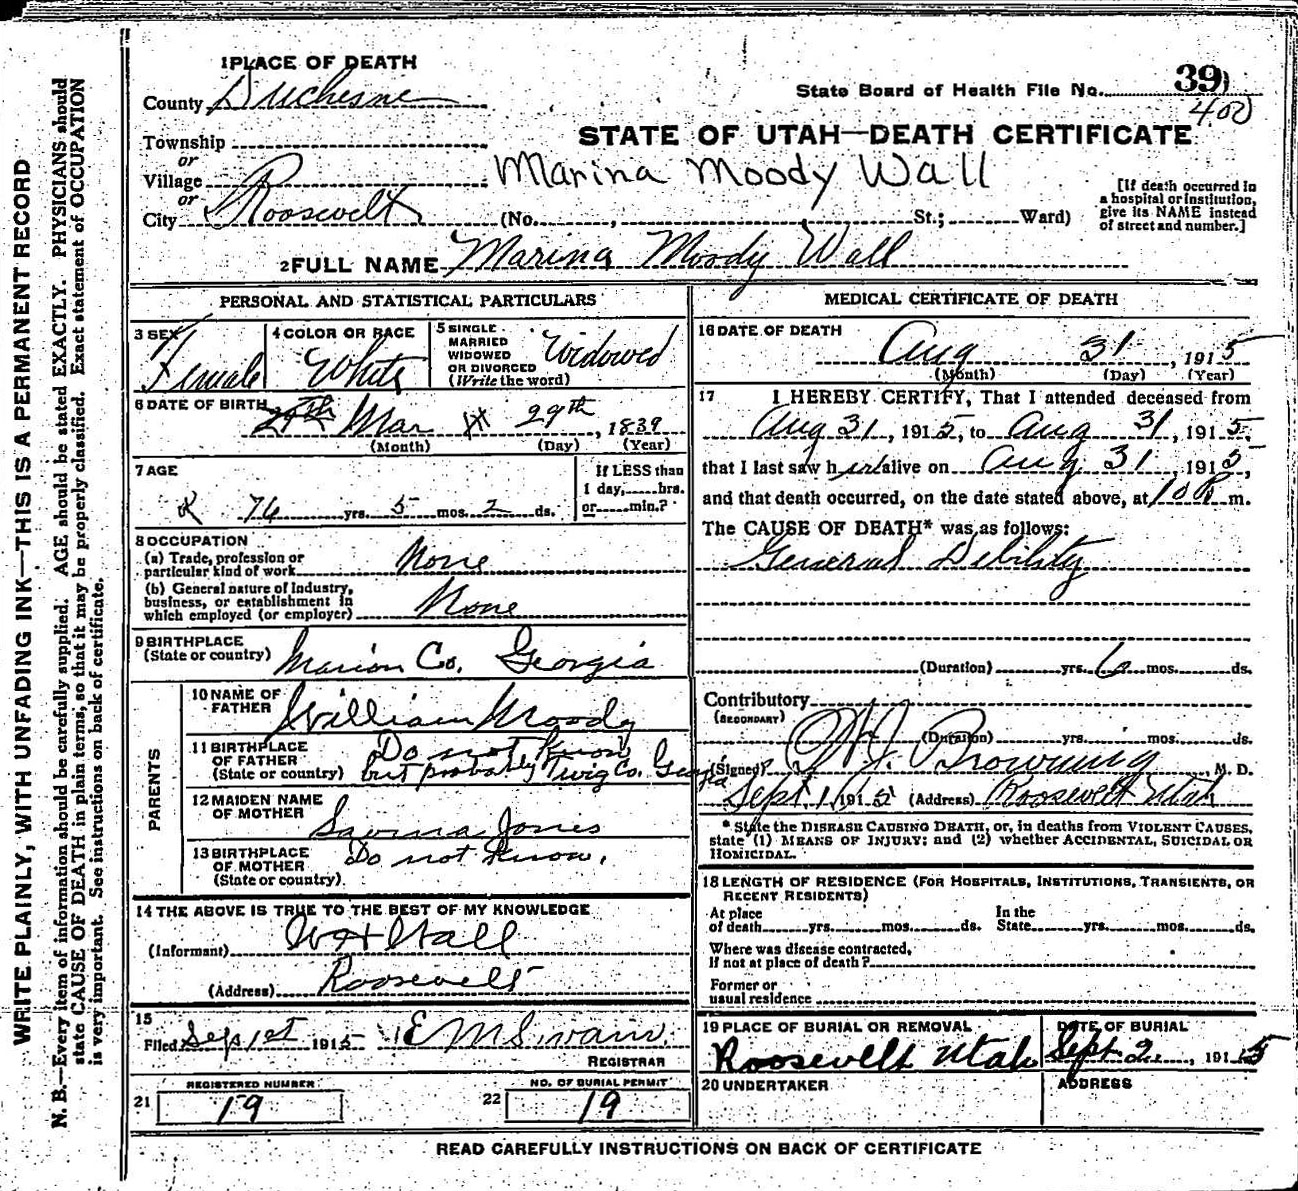 WRITE PLAINLY, WITH UNFADING INK—THIS IS A PERMANENT RECORD
N. B.—Every item of information should be carefully supplied. AGE should be stated EXACTLY. PHYSICIANS should
state CAUSE OF DEATH in plain terms, so that it may be properly classified. Exact statement of OCCUPATION
is very important. See instructions on back of certificate.
1 PLACE OF DEATH
County Duchesne
Township
or
Village
or
City Roosevelt
State Board of Health File No. 39
400
STATE OF UTAH—DEATH CERTIFICATE
Marina Moody Wall
(No. , St.; Ward)
[If death occurred in
a hospital or institution,
give its NAME instead
of street and number.]
2 FULL NAME Marina Moody Wall
PERSONAL AND STATISTICAL PARTICULARS
3 SEX Female
4 COLOR OR RACE White
5 SINGLE
MARRIED
WIDOWED
OR DIVORCED
(Write the word) Widowed
6 DATE OF BIRTH 29th Mar 29th, 1839
(Month) (Day) (Year)
7 AGE
76 yrs. 5 mos. 2 ds.
If LESS than
1 day, hrs.
or min.?
8 OCCUPATION
(a) Trade, profession or
particular kind of work None
(b) General nature of industry,
business, or establishment in
which employed (or employer) None
9 BIRTHPLACE
(State or country) Marion Co. Georgia
PARENTS
10 NAME OF
FATHER William Moody
11 BIRTHPLACE
OF FATHER
(State or country) Do not know
but probably Twig Co. Georgia
12 MAIDEN NAME
OF MOTHER Savina Jones
13 BIRTHPLACE
OF MOTHER
(State or country) Do not know.
14 THE ABOVE IS TRUE TO THE BEST OF MY KNOWLEDGE
(Informant) Wall
(Address) Roosevelt
15
Filed Sep 1st 1915 E M Swain
REGISTRAR
REGISTERED NUMBER
21 19
NO. OF BURIAL PERMIT
22 19
MEDICAL CERTIFICATE OF DEATH
16 DATE OF DEATH
Aug 31, 1915
(Month) (Day) (Year)
17 I HEREBY CERTIFY, That I attended deceased from
Aug 31, 1915, to Aug 31, 1915,
that I last saw her alive on Aug 31, 1915,
and that death occurred, on the date stated above, at 10 P m.
The CAUSE OF DEATH* was as follows:
General Debility
(Duration) yrs. 6 mos. ds.
Contributory
(SECONDARY)
(Duration) yrs. mos. ds.
(Signed) Browning M. D.
Sept 1, 1915 (Address) Roosevelt Utah
* State the DISEASE CAUSING DEATH, or, in deaths from VIOLENT CAUSES,
state (1) MEANS OF INJURY; and (2) whether ACCIDENTAL, SUICIDAL OR
HOMICIDAL.
18 LENGTH OF RESIDENCE (FOR HOSPITALS, INSTITUTIONS, TRANSIENTS, OR
RECENT RESIDENTS)
At place
of death yrs. mos. ds.
In the
State yrs. mos. ds.
Where was disease contracted,
If not at place of death?
Former or
usual residence
19 PLACE OF BURIAL OR REMOVAL
Roosevelt Utah
DATE OF BURIAL
Sept 2, 1915
20 UNDERTAKER
ADDRESS
READ CAREFULLY INSTRUCTIONS ON BACK OF CERTIFICATE